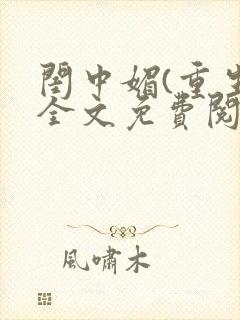 閨中媚(重生
全文免費閱
風嘯木